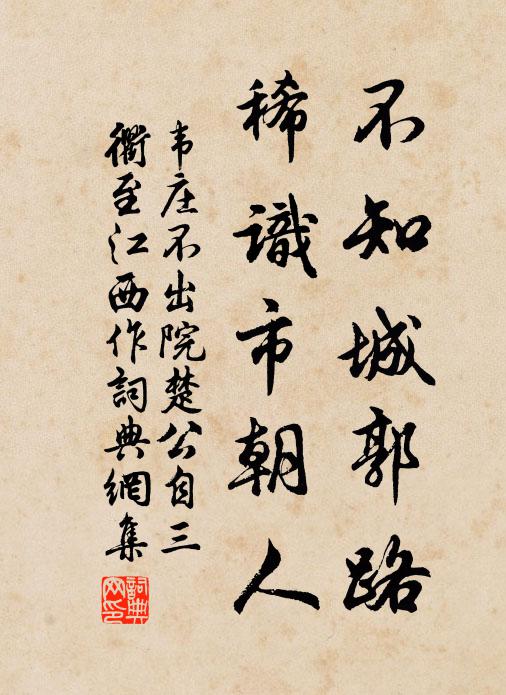 不知城郭路
稀識市朝人
韦庄不出院楚公自三
衢至江西作詞典網集
詞典网印